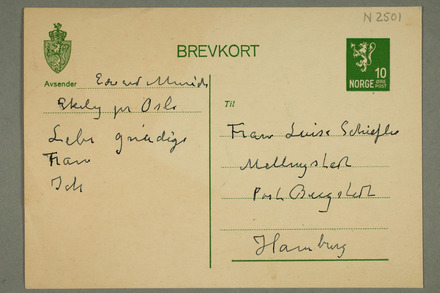 N 2501
BREVKORT
10
NORGE ØRE POST
Avsender Edvard Munch
Ekely pr Oslo
Til
Liebe gnädige
Frau
Ich
Frau Luise Schiefler
Mellingstedt
Post Bergstedt
Hamburg